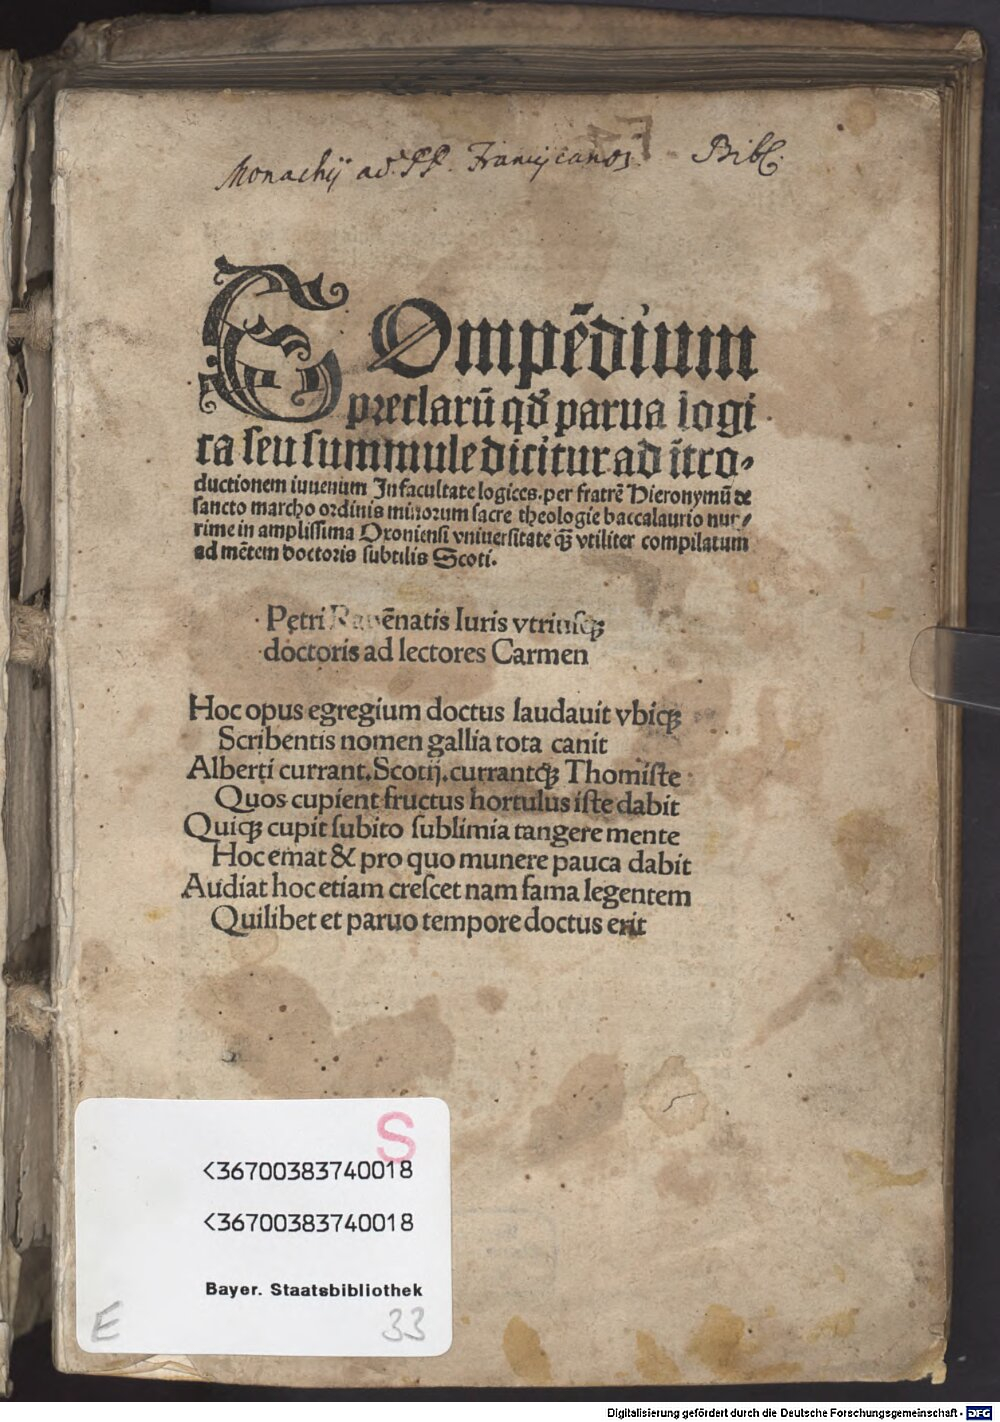 Monachij ad. PP. Franciscanos. Bibl.
COmpēdium
preclarū qđ parua logi
ca seu summule dicitur ad ītro⸗
ductionem iuuenum In facultate logices. per fratrē Hieronymū de
sancto marcho ordinis minorum sacre theologie baccalaurio nur⸗
rime in amplissima Oxoniensi vniuersitate qȝ vtiliter compilatum
ad mētem doctoris subtilis Scoti.
Petri Rauēnatis Iuris vtriusqȝ
doctoris ad lectores Carmen
Hoc opus egregium doctus laudauit vbiqȝ
Scribentis nomen gallia tota canit
Alberti currant. Scotij. currantqȝ Thomiste
Quos cupient fructus hortulus iste dabit
Quiqȝ cupit subito sublimia tangere mente
Hoc emat & pro quo munere pauca dabit
Audiat hoc etiam crescet nam fama legentem
Quilibet et paruo tempore doctus erit
S
<36700383740018
<36700383740018
Bayer. Staatsbibliothek
E 33
Digitalisierung gefördert durch die Deutsche Forschungsgemeinschaft - DFG